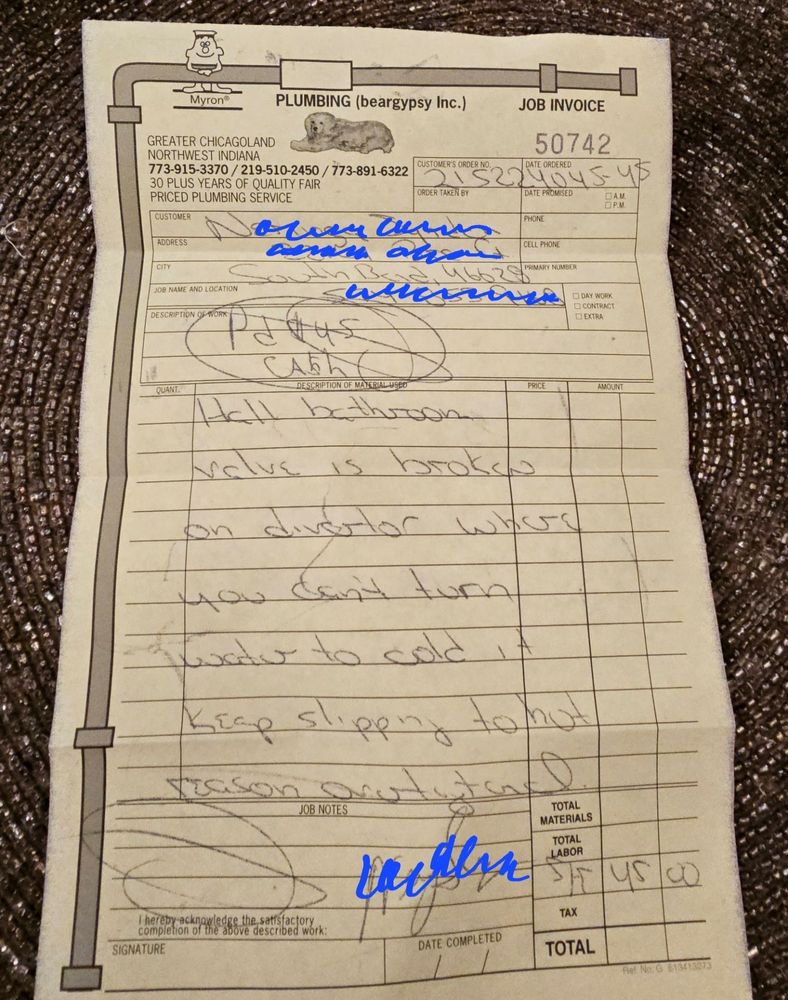 Myron®
PLUMBING (beargypsy Inc.)
JOB INVOICE
GREATER CHICAGOLAND
NORTHWEST INDIANA
773-915-3370 / 219-510-2450 / 773-891-6322
30 PLUS YEARS OF QUALITY FAIR
PRICED PLUMBING SERVICE
50742
CUSTOMER'S ORDER NO.
DATE ORDERED
ORDER TAKEN BY
DATE PROMISED
A.M.
P.M.
CUSTOMER
PHONE
ADDRESS
CELL PHONE
CITY South Bend
PRIMARY NUMBER
JOB NAME AND LOCATION
DAY WORK
CONTRACT
EXTRA
DESCRIPTION OF WORK
Pd $45
CASh
QUANT.
DESCRIPTION OF MATERIAL USED
PRICE
AMOUNT
Hall bathroom
valve is broken
on divertor where
you can't turn
water to cold it
keep slipping to hot
reason
JOB NOTES
TOTAL MATERIALS
TOTAL LABOR
45 00
TAX
TOTAL
I hereby acknowledge the satisfactory
completion of the above described work:
SIGNATURE
DATE COMPLETED
/ /
Ref. No. G